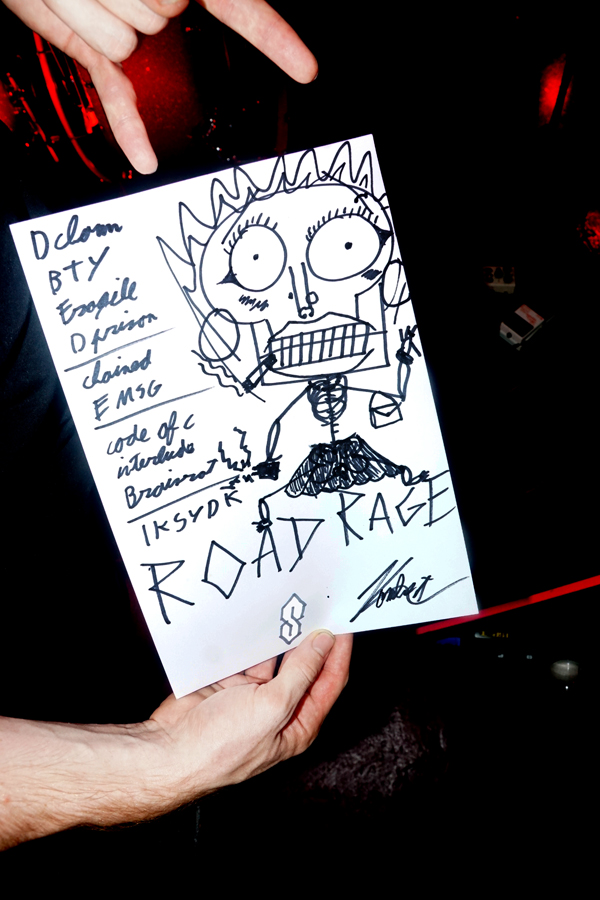 D clown
BTY
D prison
chained
E MSG
code of c
interlude
Brainrot
IKSYDK
ROAD RAGE